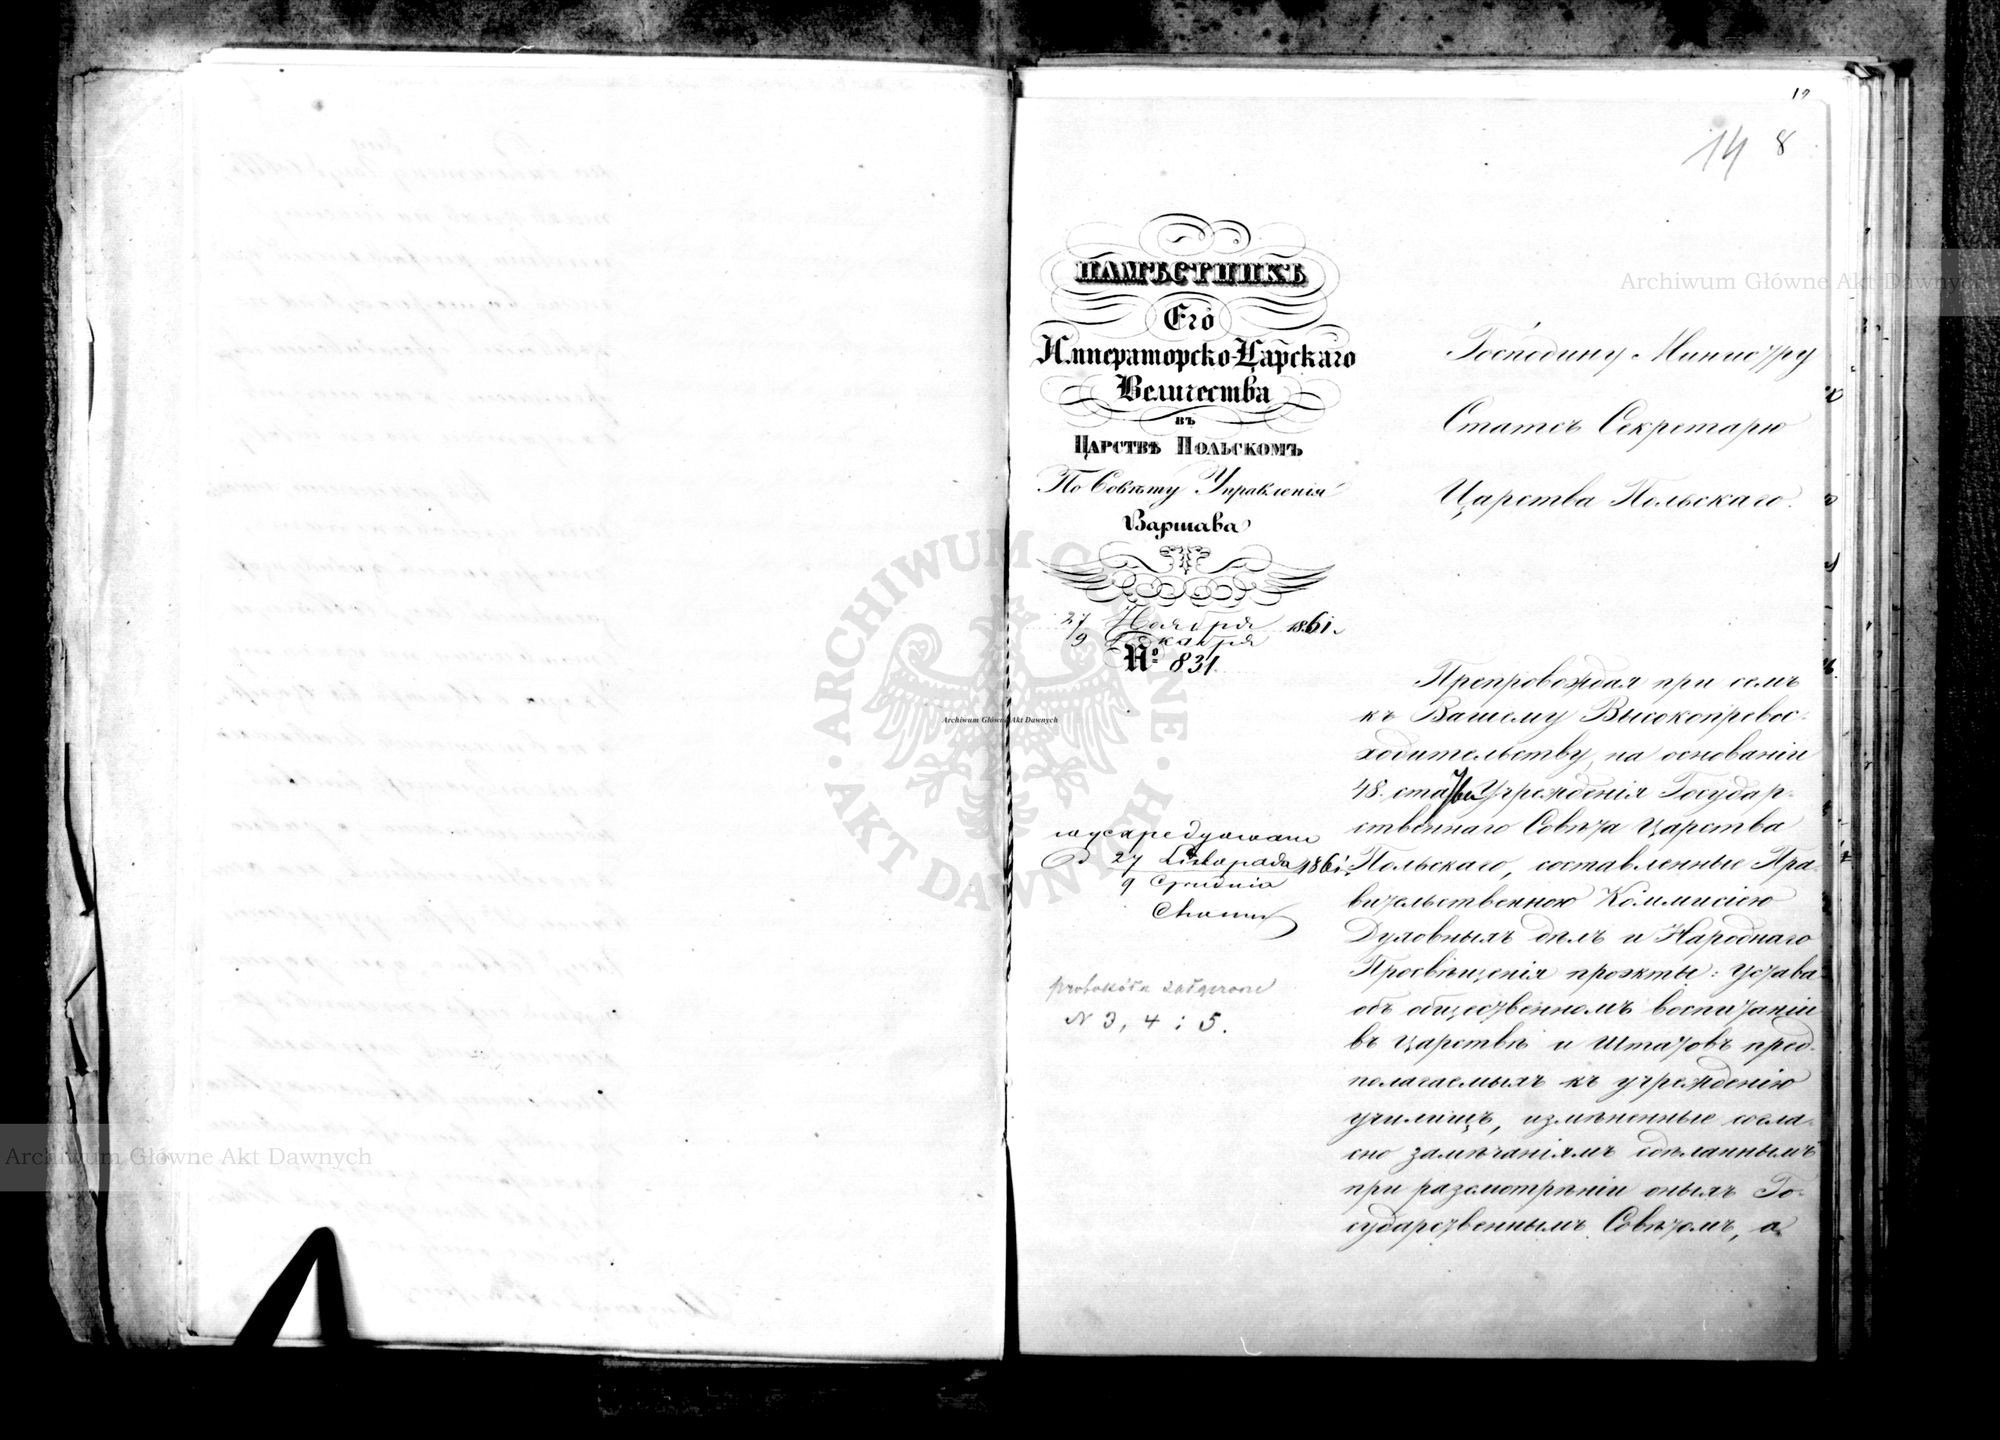 12
14 8
НАМѢСТНИКЪ
Его
Императорско-Царскаго
Величества
въ
Царствѣ Польскомъ
По Совѣту Управленія
Варшава
27 Ноября 1861.
9 Декабря
№ 831.
Господину Министру
Статсъ Секретарю
Царства Польскаго.
Препровождая при семъ
къ Вашему Высокопревос-
ходительству, на основаніи
48. статьи Учрежденія Государ-
ственнаго Совѣта Царства
Польскаго, составленные Пра-
вительственною Коммисіею
Духовныхъ дѣлъ и Народнаго
Просвѣщенія проэкты: Устава
объ общественномъ воспитаніи
въ Царствѣ и Штатовъ пред-
полагаемыхъ къ учрежденію
училищъ, измѣненные согла-
сно замѣчаніямъ сдѣланнымъ
при разсмотрѣніи оныхъ Го-
сударственнымъ Совѣтомъ, а
wyexpedyowano
D 27 Listopada 1861.
9 Grudnia
N 3, 4 i 5.
Archiwum Główne Akt Dawnych
Archiwum Główne Akt Dawnych
Archiwum Główne Akt Dawnych
ARCHIWUM GŁÓWNE · AKT DAWNYCH ·